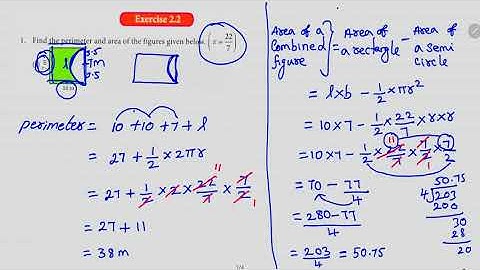 Exercise 2.2
1. Find the perimeter and area of the figures given below. (π = 22/7)
3.5
7m
3.5
l
10 m
perimeter = 10 + 10 + 7 + l
= 27 + 1/2 × 2πr
= 27 + 1/2 × 2 × 22/7 × 7/2
11
1
= 27 + 11
= 38m
Area of a combined figure } = Area of a rectangle - Area of a semi circle
= l × b - 1/2 πr²
= 10 × 7 - 1/2 × 22/7 × r × r
= 10 × 7 - 1/2 × 22/7 × 7/2 × 7/2
11
1
= 70 - 77/4
= 280 - 77 / 4
= 203/4 = 50.75
50.75
4 203
200
30
28
20
1/4